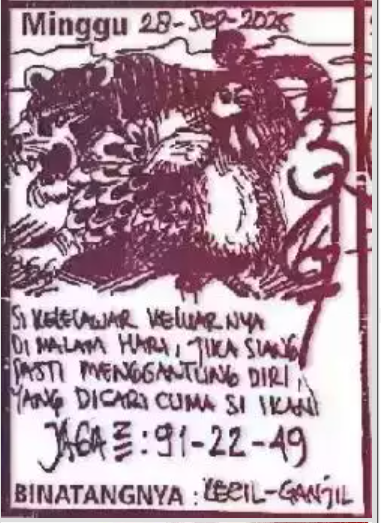 Minggu 28-SEP-2025
SI KELELAWAR KELUARNYA
DI MALAM HARI, JIKA SIANG
PASTI MENGGANTUNG DIRI,
YANG DICARI CUMA SI IKAN
JAGA : 91-22-49
BINATANGNYA : KECIL-GANJIL